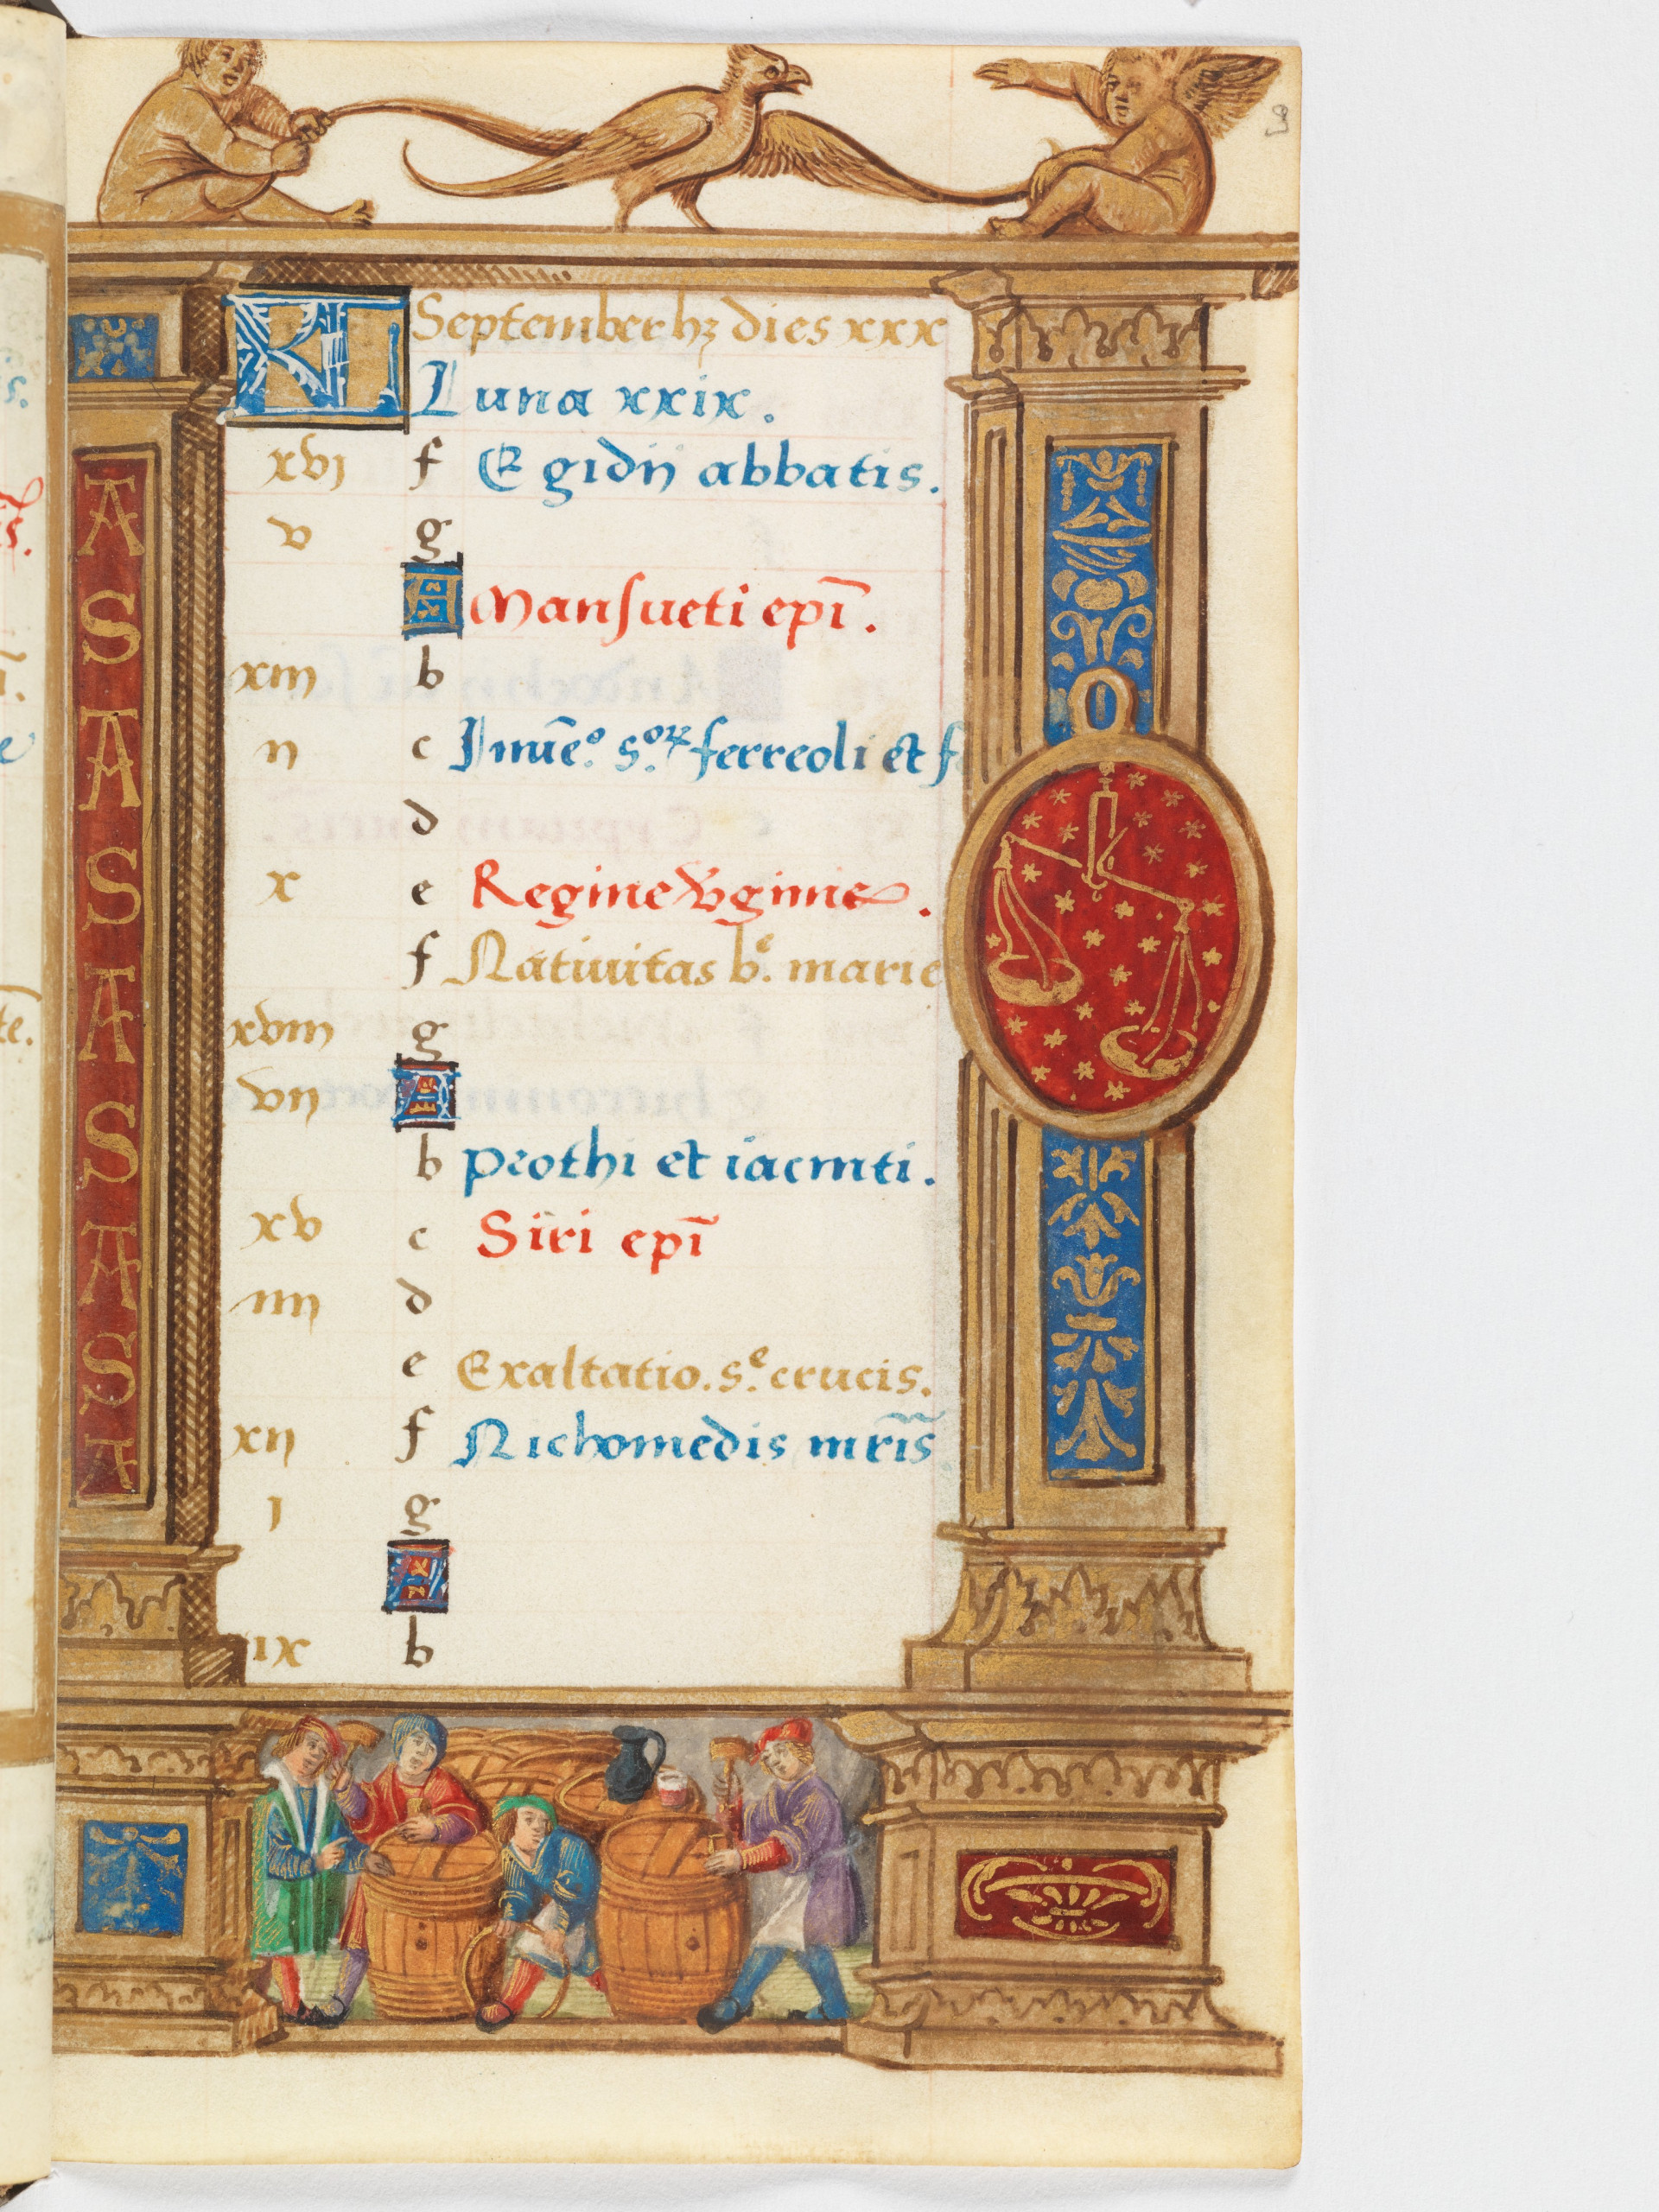 KL September hꝫ dies xxx
Luna xxix.
xvj f Egidij abbatis.
v g
A Mansueti epī.
xiij b
ij c Inuē° s°ꝝ ferreoli et f
d
x e Regine v̄ginis.
f Natiuitas bᵉ. marie
xviij g
vij A
b Prothi et iacinti.
xv c Siri epī
iiij d
e Exaltatio. sᵉ. crucis.
xij f Nichomedis mr̄is
j g
A
ix b
A
S
A
S
A
S
A
S
A